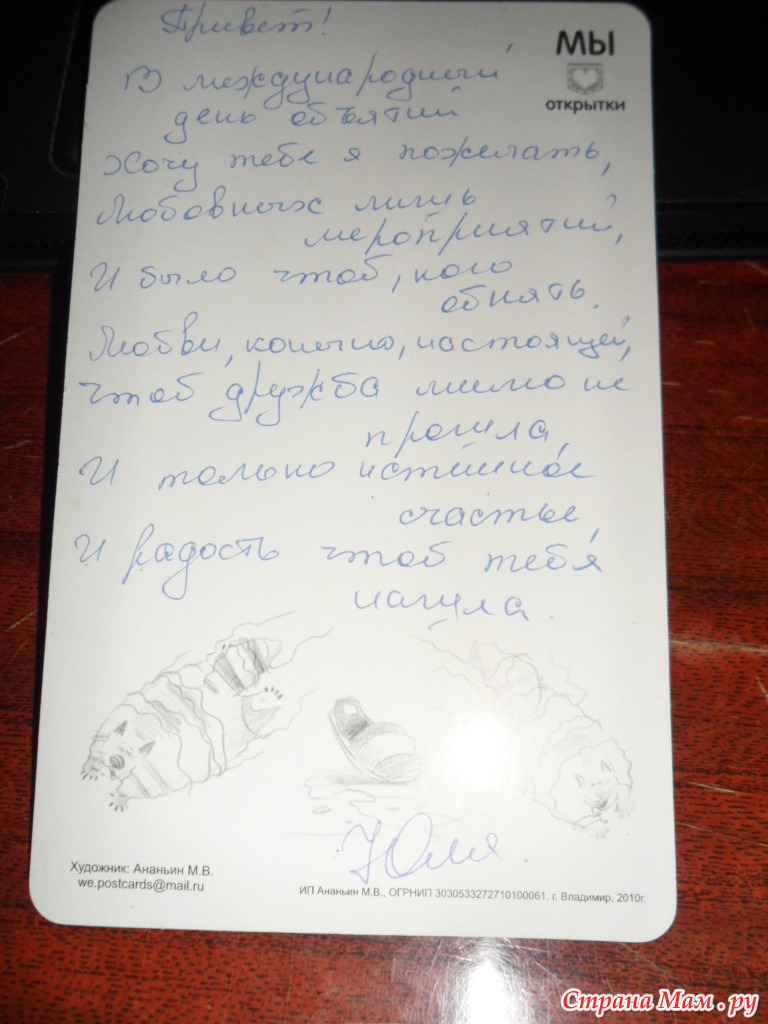 Привет!
МЫ
открытки
В международный
день объятий
Хочу тебе я пожелать,
Любовных лишь
мероприятий,
И было чтоб, кого
обнять.
Любви, конечно, настоящей,
Чтоб дружба мимо не
прошла,
И только истинное
счастье,
И радость чтоб тебя
нашла.
Юля.
Художник: Ананьин М.В.
we.postcards@mail.ru
ИП Ананьин М.В., ОГРНИП 3030533272710100061, г. Владимир, 2010г.
Страна Мам.ру